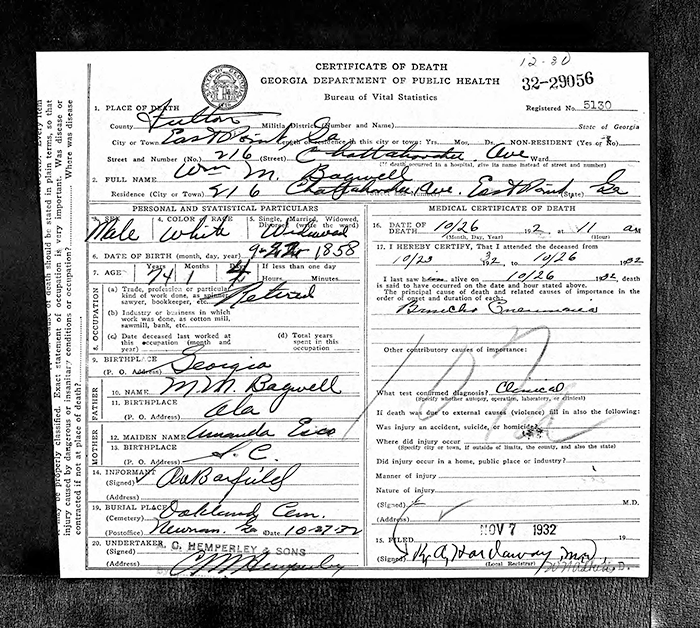 12-30
CERTIFICATE OF DEATH
GEORGIA DEPARTMENT OF PUBLIC HEALTH
32-29056
Bureau of Vital Statistics
Registered No. 5130
1. PLACE OF DEATH
County Fulton Militia District (Number and Name) State of Georgia
City or Town East Point Ga Length of residence in this city or town: Yrs. Mos. Ds. NON-RESIDENT (Yes or No)
Street and Number (No.) 216 (Street) Chattahoochee Ave Ward
(If death occurred in a hospital, give its name instead of street and number)
2. FULL NAME Wm M. Bagwell
Residence (City or Town) 216 Chattahoochee Ave. East Point (State) Ga
PERSONAL AND STATISTICAL PARTICULARS
3. SEX 4. COLOR / RACE 5. Single, Married, Widowed, Divorced (write the word)
Male White Widowed
6. DATE OF BIRTH (month, day, year) 1858
7. AGE Years Months If less than one day
74 1 Hours Minutes
8. OCCUPATION
(a) Trade, profession or particular kind of work done, as spinner, sawyer, bookkeeper, etc. Retired
(b) Industry or business in which work was done, as cotton mill, sawmill, bank, etc.
(c) Date deceased last worked at this occupation (month and year)
(d) Total years spent in this occupation
9. BIRTHPLACE Georgia
(P. O. Address)
FATHER
10. NAME M. M. Bagwell
11. BIRTHPLACE Ala
(P. O. Address)
MOTHER
12. MAIDEN NAME Amanda
13. BIRTHPLACE S. C.
(P. O. Address)
14. INFORMANT
(Signed) Barfield
(Address)
19. BURIAL PLACE
(Cemetery) Oakland Cem.
(Postoffice) Newnan, Ga Date 10-27-32
20. UNDERTAKER A. C. HEMPERLEY & SONS
(Signed)
(Address) Hemperley
MEDICAL CERTIFICATE OF DEATH
16. DATE OF DEATH 10/26 192 at 11 am
(Month, Day, Year) (Hour)
17. I HEREBY CERTIFY, That I attended the deceased from
10/23 32 to 10/26 1932
I last saw alive on 10/26 1932 death
is said to have occurred on the date and hour stated above.
The principal cause of death and related causes of importance in order of onset and duration of each:
Broncho Pneumonia
Other contributory causes of importance:
What test confirmed diagnosis? Clinical
(Specify whether autopsy, operation, laboratory, or clinical)
If death was due to external causes (violence) fill in also the following:
Was injury an accident, suicide, or homicide?
Where did injury occur
(Specify city or town, if outside of limits, the county, and also the state)
Did injury occur in a home, public place or industry?
Manner of injury
Nature of injury
(Signed) M.D.
(Address)
NOV 7 1932
15. FILED 19
(Signed) Hardaway M.D.
(Local Registrar)